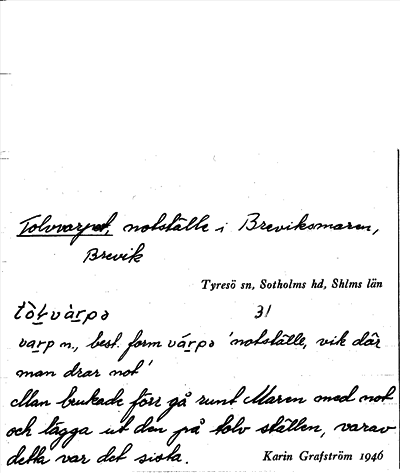 Tolvvarpet, notställe i Breviksmaren,
Brevik
Tyresö sn, Sotholms hd, Shlms län
31
varp n., best. form várpə 'notställe, vik där
man drar not'
Man brukade förr gå runt Maren med not
och lägga ut den på tolv ställen, varav
detta var det sista.
Karin Grafström 1946